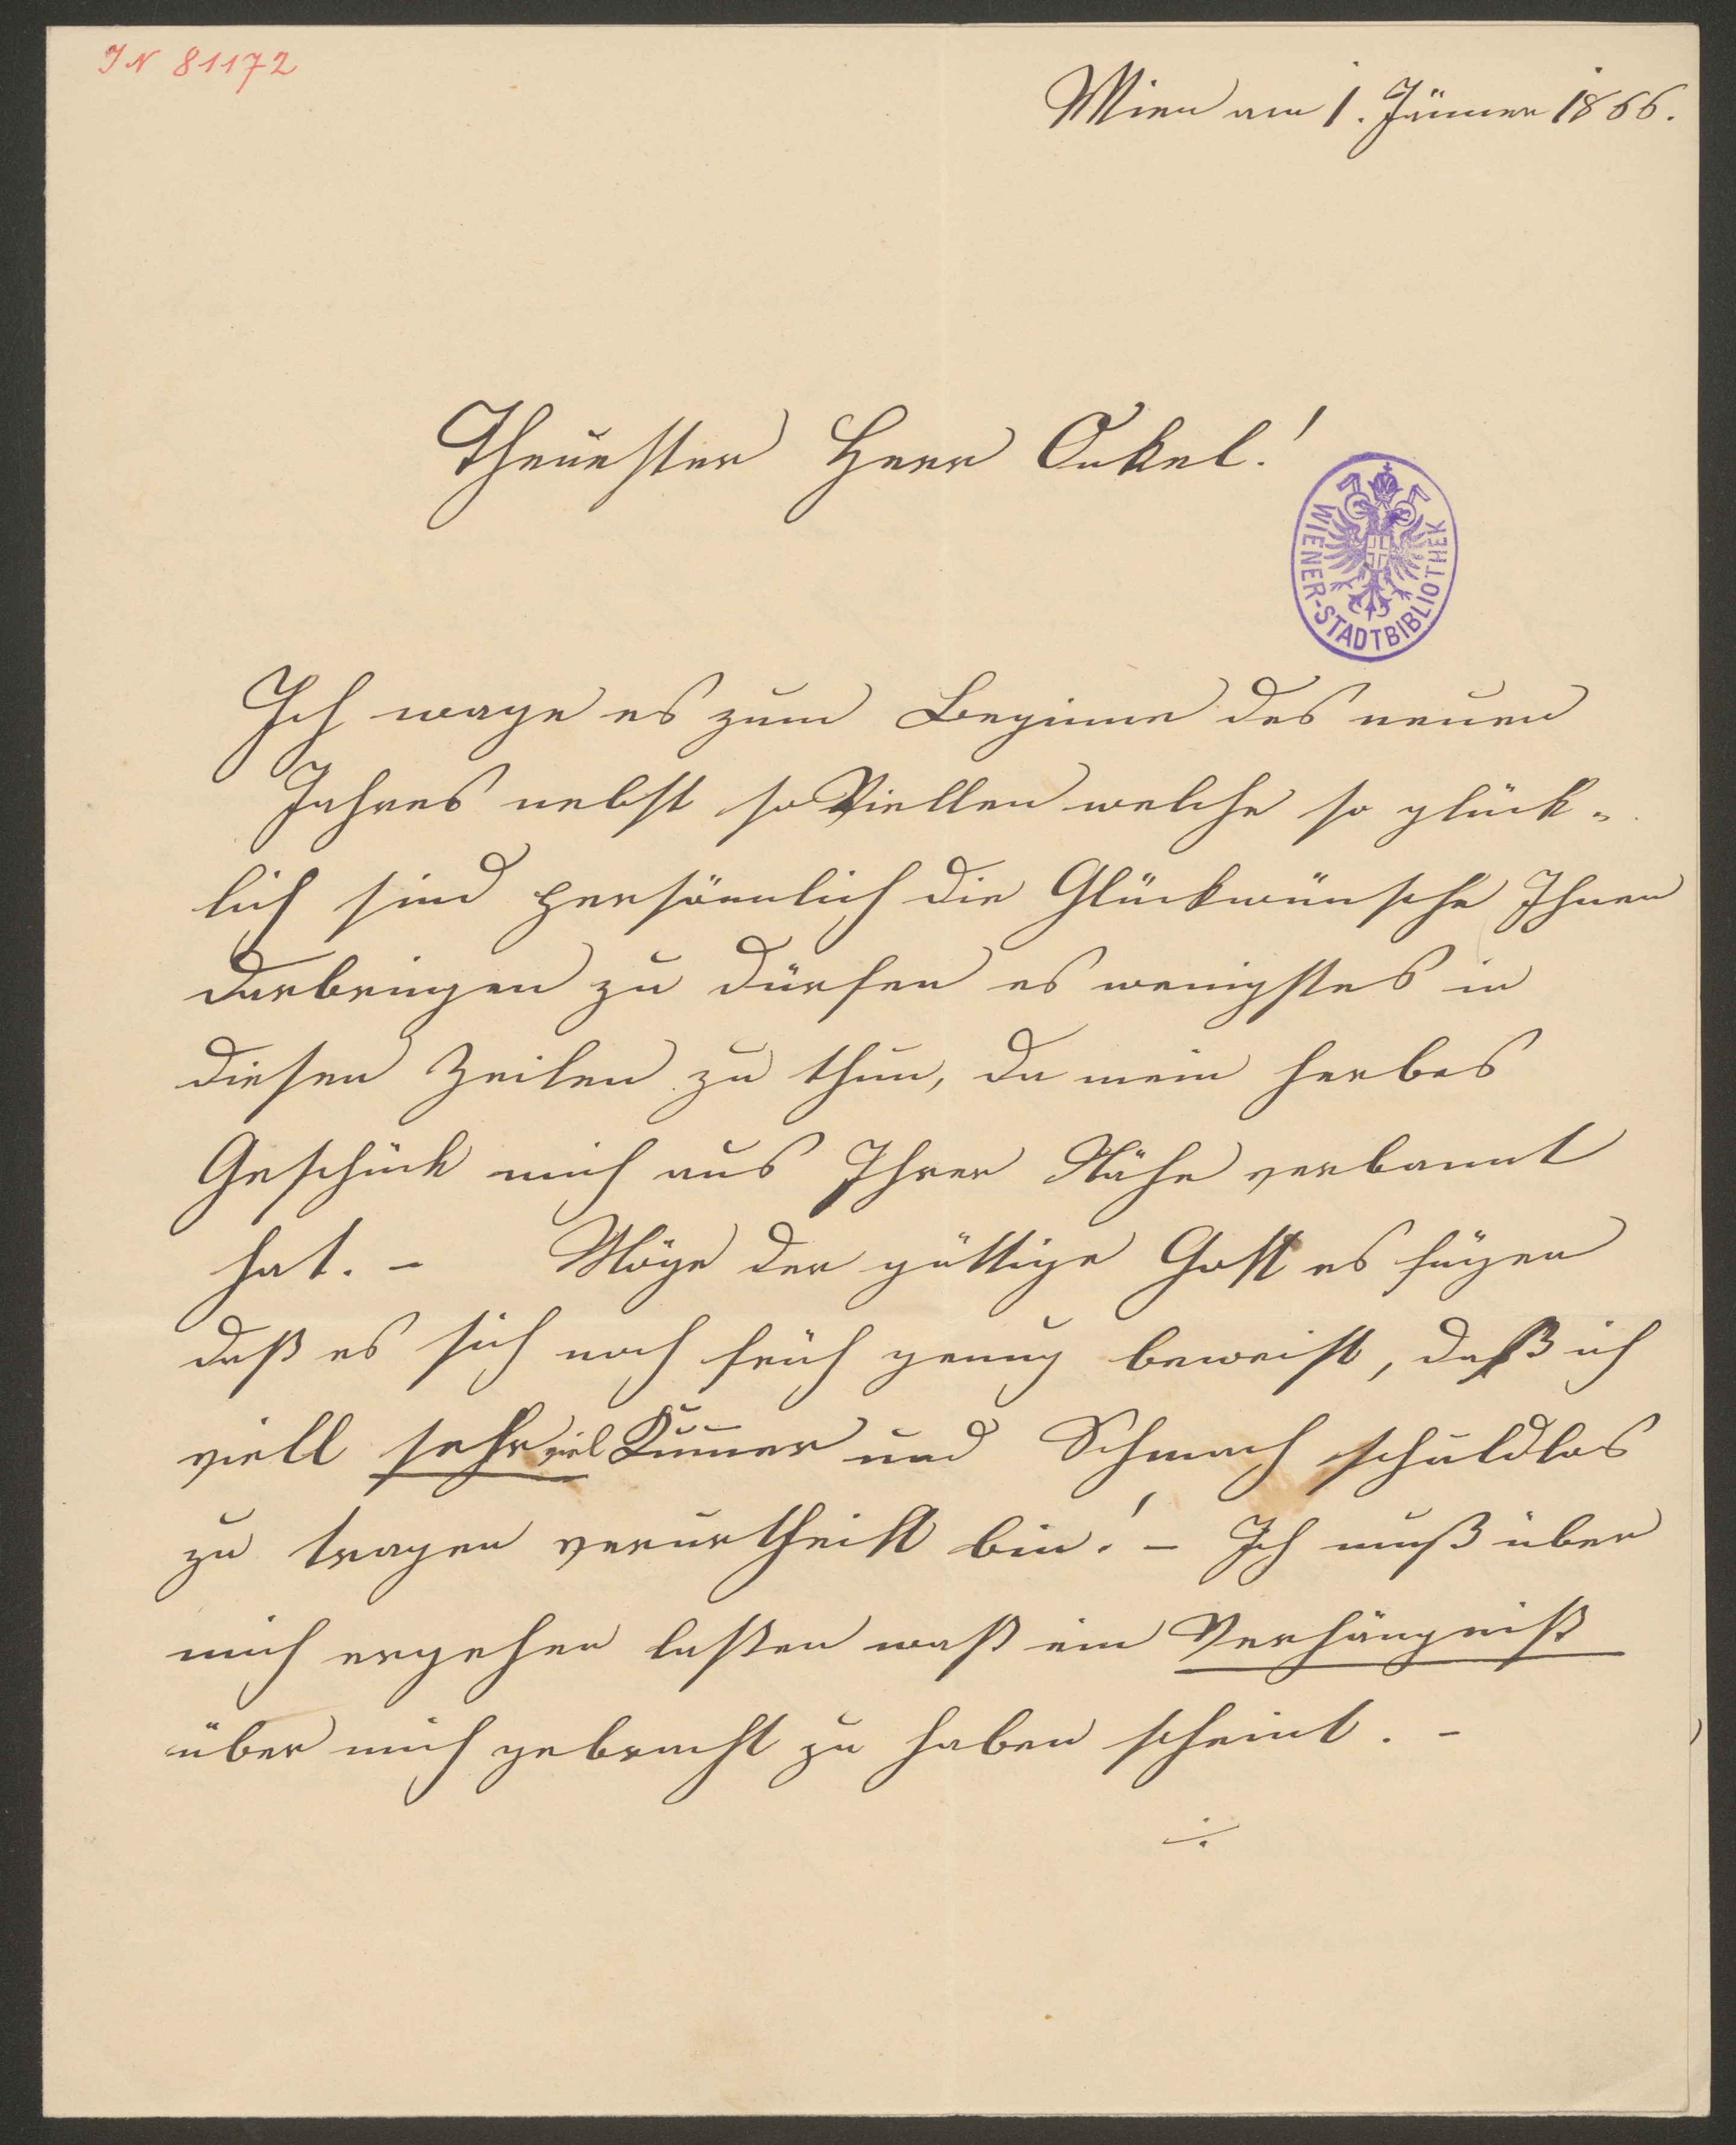 IN 81172
Wien am 1. Jänner 1866.
Theuerster Herr Onkel!
WIENER-STADTBIBLIOTHEK
Ich wage es zum Beginne des neuen
Jahres nebst so Viellen welche so glück-
lich sind persönnlich die Glückwünsche Ihnen
darbringen zu dürfen es wenigstes in
diesen Zeilen zu thun, da mein herbes
Geschück mich aus Ihrer Nähe verbannt
hat. – Möge der güttige Gott es fügen
daß es sich noch früh genug beweist, daß ich
viell sehr viel Kum̅er und Schmach schuldlos
zu tragen verurtheilt bin! – Ich muß über
mich ergehen laßen waß ein Verhängniß
über mich gebracht zu haben scheint. –
./.